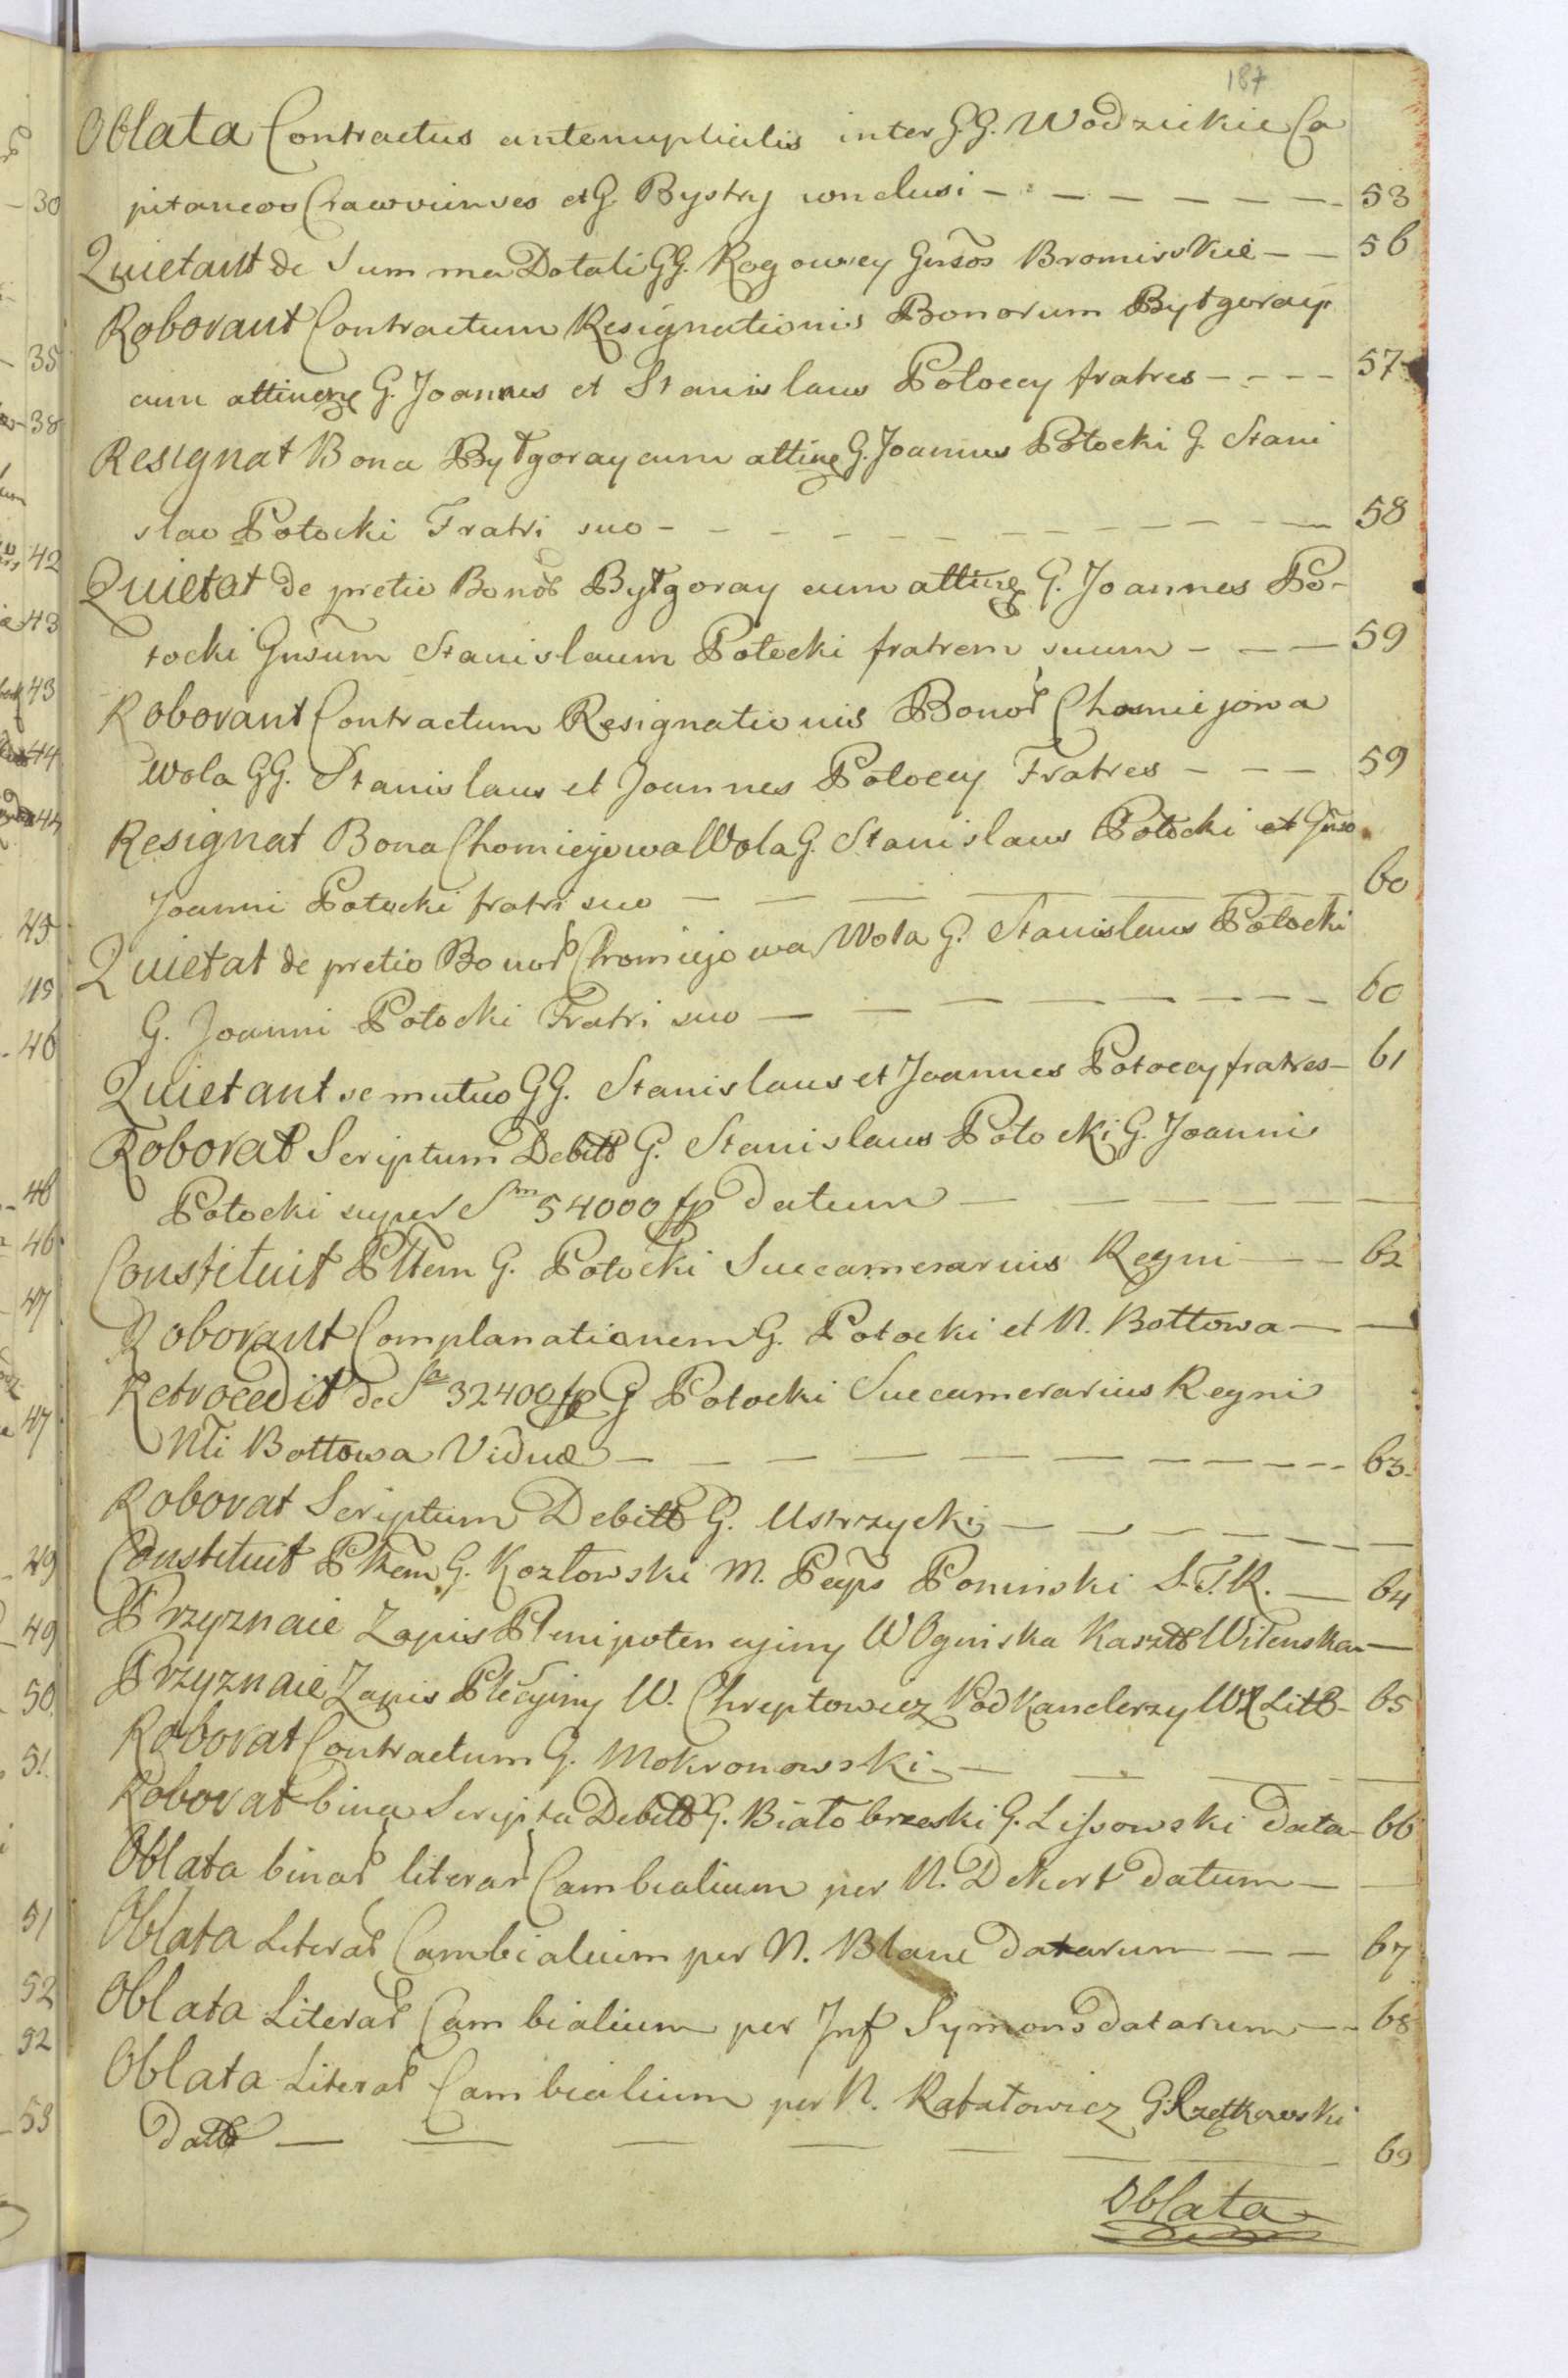 187
Oblata Contractus antenuptialis inter G.G. Wodzickie Ca
pitaneos Cracovienses et G. Bystry conclusi - - - - - - - 53
Quietant de Summa Dotali GG. Rogowcy Gnsos Bromirskie - - 56
Roborant Contractum Resignationis Bonorum Bytgoray
cum attinen G. Joannes et Stanislaus Potoccy fratres - - - - 57
Resignat Bona Bytgoray cum attine G. Joannes Potocki G. Stani
slao Potocki Fratri suo - - - - - - - - - - 58
Quietat de pretio Bonor Bytgoray cum attine G. Joannes Po-
tocki Gnsum Stanislaum Potocki fratrem suum - - - 59
Roborant Contractum Resignationis Bonor Chomiejowa
Wola GG. Stanislaus et Joannes Potoccy Fratres - - - 59
Resignat Bona Chomiejowa Wola G. Stanislaus Potocki et Gnso
Joanni Potocki fratri suo - - - - - - - 60
Quietat de pretio Bonor Chomiejowa Wola G. Stanislaus Potocki
G. Joanni Potocki Fratri suo - - - - - - - - 60
Quietant se mutuo GG. Stanislaus et Joannes Potoccy fratres - 61
Roborat Scriptum Debiti G. Stanislaus Potocki G. Joanni
Potocki super Sm 54000 fp datum - - - - - -
Constituit Pttem G. Potocki Succamerarius Regni - - - 62
Roborant Complanationem G. Potocki et N. Bottowa - -
Retrocedit de Sa 32400 fp G Potocki Succamerarius Regni
Nli Bottowa Viduæ - - - - - - - - - - 63
Roborat Scriptum Debiti G. Ustrzycki - - - - - - -
Constituit Pttem G. Kozłowski M. Peyps Poninski S. T. R. - 64
Przyznaie Zapis Plenipotencyiny W Oginska Kasztt Wilenska -
Przyznaie Zapis Pltcyiny W. Chreptowicz Podkanclerzy WX Litt - 65
Roborat Contractum G. Mokronowski - - - - -
Roborat bina Scripta Debiti G. Białobrzeski G. Lissowski data - 66
Oblata binar literar Cambialium per N. Dekert datum - -
Oblata Literar Cambialium per N. Blanc datarum - - - 67
Oblata Literar Cambialium per Inf Symons datarum - - 68
Oblata Literar Cambialium per N. Rafatowicz G. Rzętkowski
datt - - - - - - - - 69
Oblata